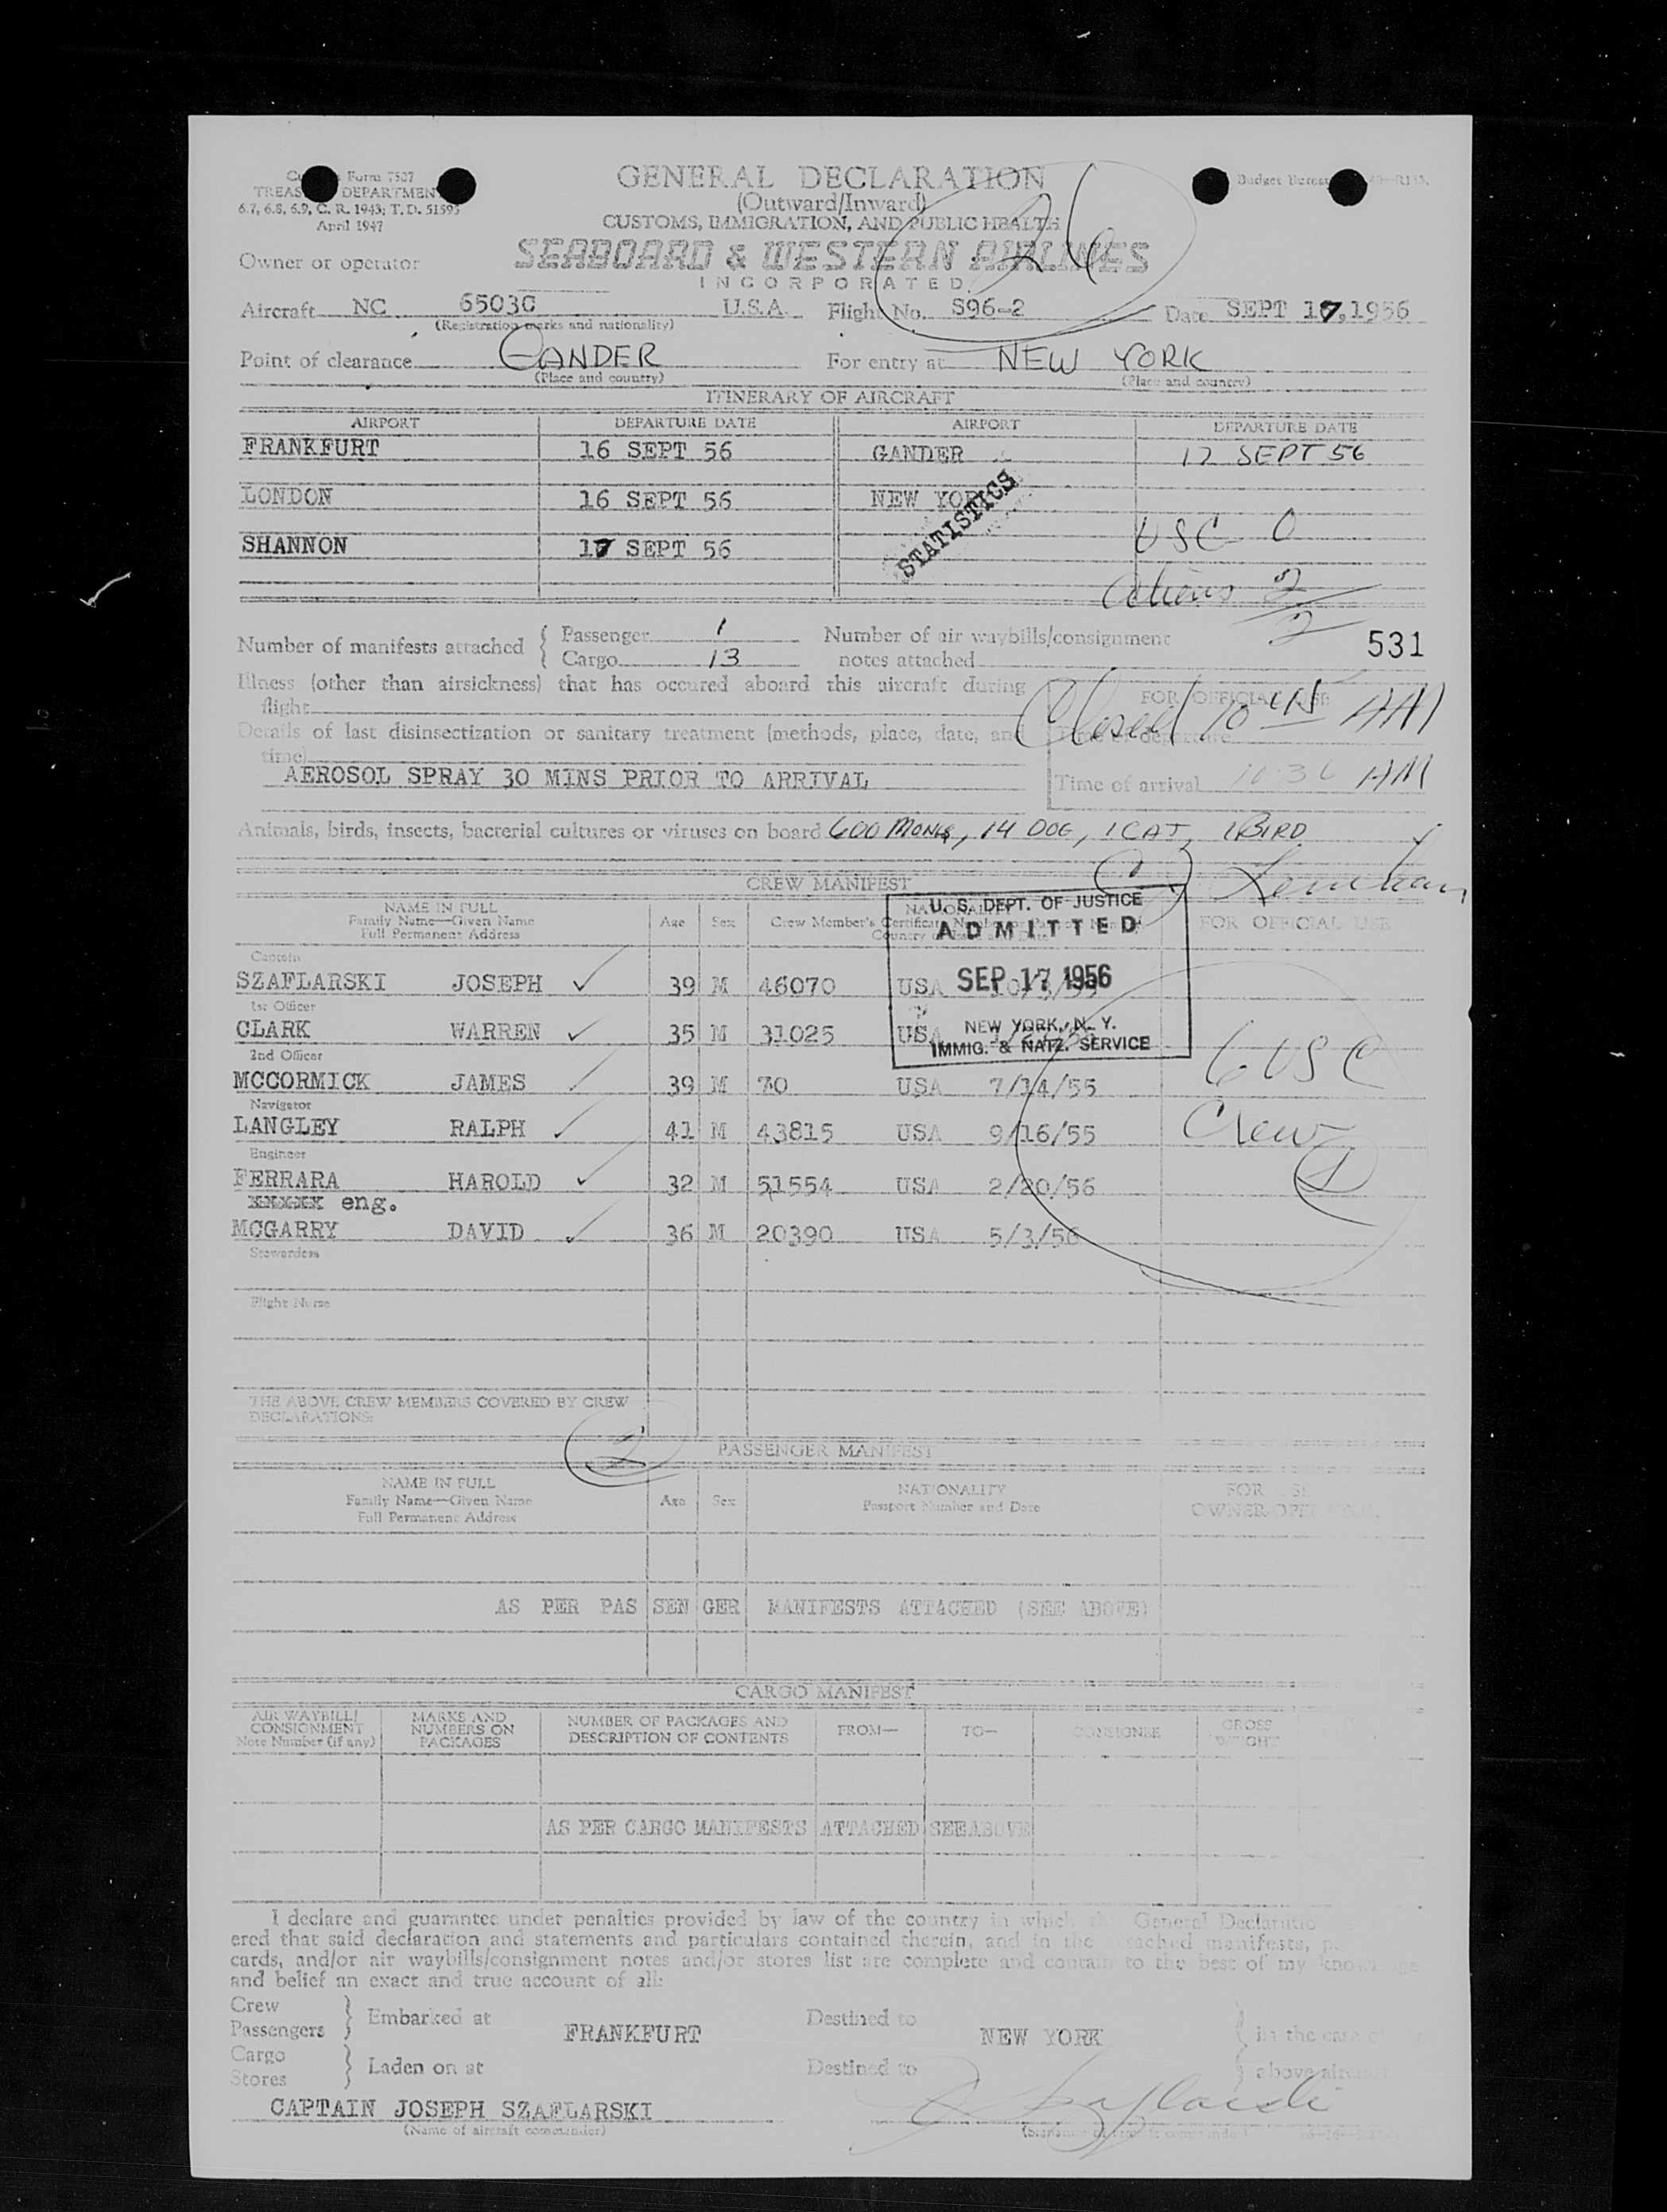 Form 7507
TREAS DEPARTMEN
6.7, 6.8, 6.9, C. R. 1943; T. D. 51595
April 1947
GENERAL DECLARATION
(Outward/Inward)
CUSTOMS, IMMIGRATION, AND PUBLIC HEALTH
Budget Bureau
26
Owner or operator
SEABOARD & WESTERN AIRLINES
INCORPORATED
Aircraft NC 6503C U.S.A. Flight No. S96-2 Date SEPT 17, 1956
(Registration marks and nationality)
Point of clearance GANDER For entry at NEW YORK
(Place and country) (Place and country)
ITINERARY OF AIRCRAFT
AIRPORT DEPARTURE DATE AIRPORT DEPARTURE DATE
FRANKFURT 16 SEPT 56 GANDER 17 SEPT 56
LONDON 16 SEPT 56 NEW YORK
STATISTICS
USC 0
SHANNON 17 SEPT 56
Aliens 2
2
Number of manifests attached { Passenger 1
Cargo 13
Number of air waybills/consignment
notes attached
531
Illness (other than airsickness) that has occured aboard this aircraft during
flight
FOR OFFICIAL USE
Closed 10 AM
Details of last disinsectization or sanitary treatment (methods, place, date, and
time)
Time of departure
AEROSOL SPRAY 30 MINS PRIOR TO ARRIVAL
Time of arrival AM
Animals, birds, insects, bacterial cultures or viruses on board 600 MONKS, 14 DOG, 1 CAT, 1 BIRD
CREW MANIFEST
NAME IN FULL
Family Name—Given Name
Full Permanent Address
Age Sex
NATIONALITY
Crew Member's Certificate
FOR OFFICIAL USE
U. S. DEPT. OF JUSTICE
ADMITTED
SEP 17 1956
NEW YORK, N. Y.
IMMIG. & NATZ. SERVICE
Captain
SZAFLARSKI JOSEPH ✓ 39 M 46070 USA
1st Officer
CLARK WARREN ✓ 35 M 31025 USA
2nd Officer
MCCORMICK JAMES ✓ 39 M 70 USA 7/14/55
6 USC
Navigator
LANGLEY RALPH ✓ 41 M 43815 USA 9/16/55
Crew
Engineer
FERRARA HAROLD ✓ 32 M 51554 USA 2/20/56
eng.
MCGARRY DAVID ✓ 36 M 20390 USA 5/3/56
Stewardess
Flight Nurse
THE ABOVE CREW MEMBERS COVERED BY CREW
DECLARATIONS:
2
PASSENGER MANIFEST
NAME IN FULL
Family Name—Given Name
Full Permanent Address
Age Sex
NATIONALITY
Passport Number and Date
FOR USE
OWNER-OPE
AS PER PAS SEN GER MANIFESTS ATTACHED (SEE ABOVE)
CARGO MANIFEST
AIR WAYBILL/
CONSIGNMENT
Note Number (if any)
MARKS AND
NUMBERS ON
PACKAGES
NUMBER OF PACKAGES AND
DESCRIPTION OF CONTENTS
FROM— TO— CONSIGNEE
GROSS
WEIGHT
AS PER CARGO MANIFESTS ATTACHED SEE ABOVE
I declare and guarantee under penalties provided by law of the country in which the General Declaratio
ered that said declaration and statements and particulars contained therein, and in the attached manifests,
cards, and/or air waybills/consignment notes and/or stores list are complete and contain to the best of my knowledge
and belief an exact and true account of all:
Crew
Passengers } Embarked at FRANKFURT Destined to NEW YORK } in the case of
Cargo
Stores } Laden on at Destined to } above aircraft
CAPTAIN JOSEPH SZAFLARSKI J Szaflarski
(Name of aircraft commander) (Signature of aircraft commander)